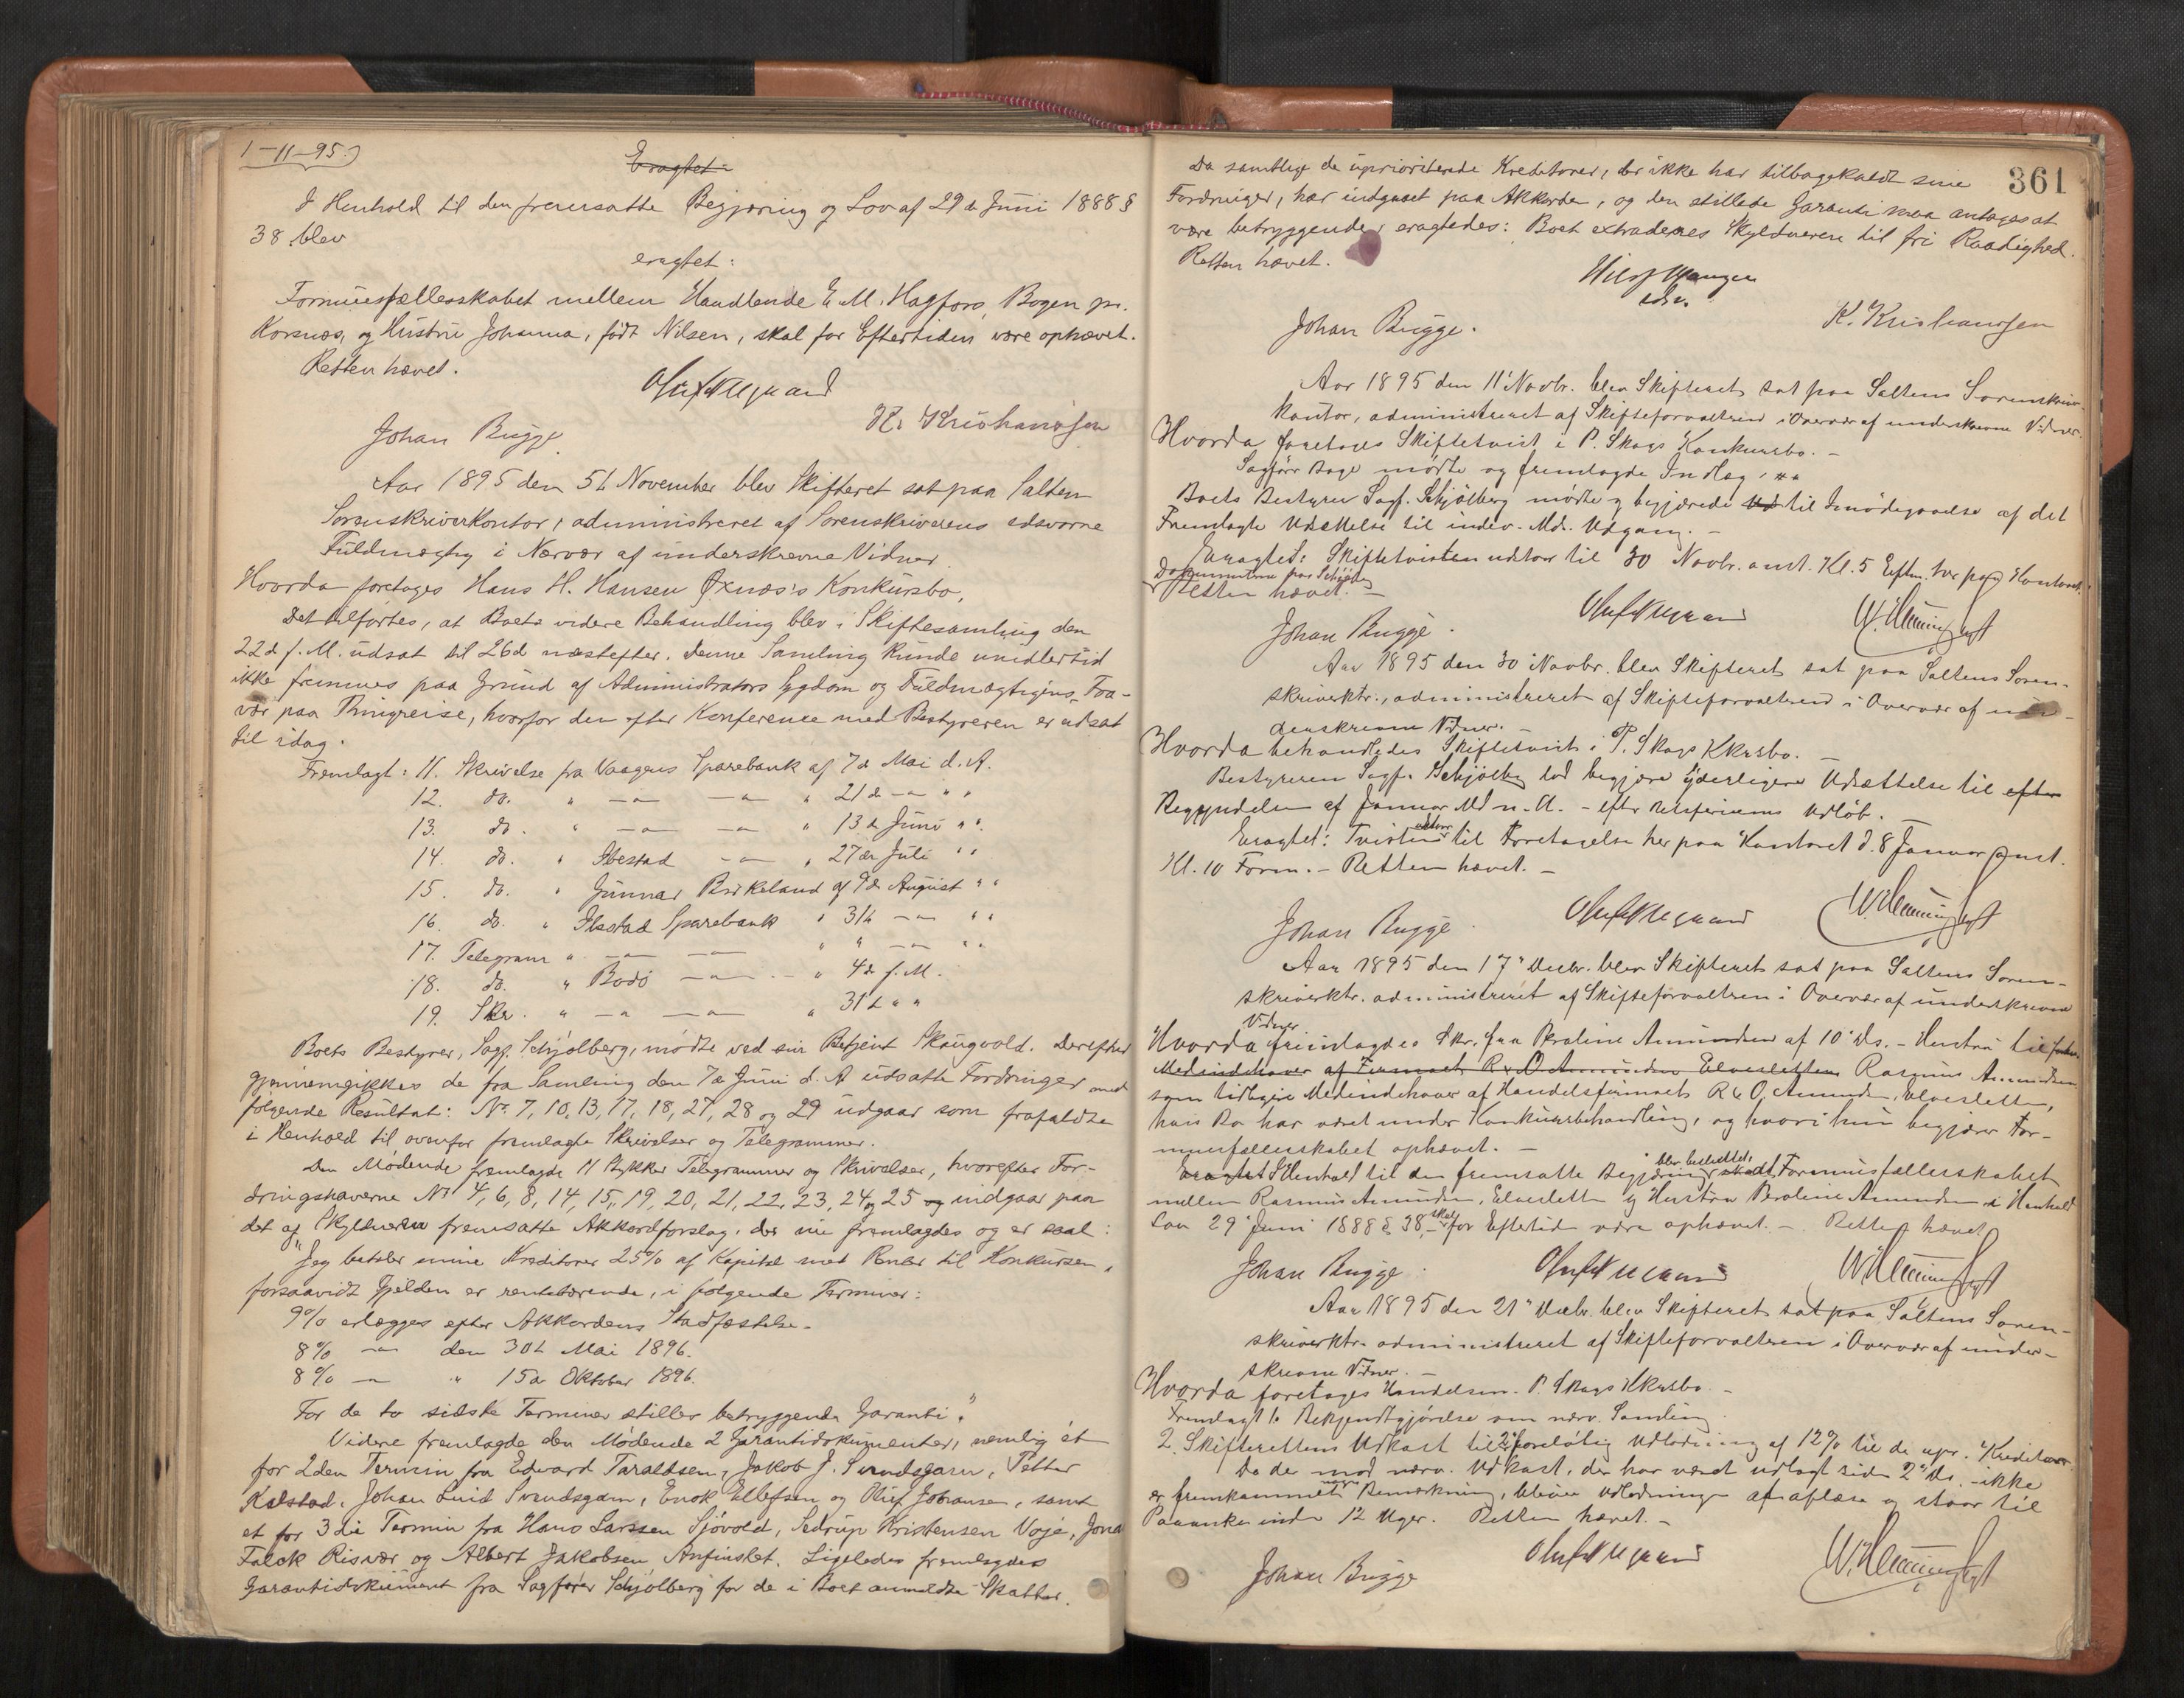 1-11-95.)
Eragtet:
I Henhold til den fremsatte Begjæring og Lov af 29de Juni 1888 §
38 blev
eragtet:
Formuesfællesskabet mellem Handlende E. M. Hagfors, Bogen pr.
Korsnæs, og Hustru Johanna, født Nilsen, skal for Eftertiden være ophævet.
Retten hævet.
Johan Bugge
K. Kristiansen
Aar 1895 den 5te November blev Skifteret sat paa Salten
Sorenskriverkontor, administreret af Sorenskriverens edsvorne
Fuldmægtig i Nærvær af underskrevne Vidner.
Hvorda foretoges Hans H. Hansen Øxnæs's Konkursbo.
Det tilførtes, at Boets videre Behandling blev i Skiftesamling den
22de f. M. udsat til 26de næstefter. Denne Samling kunde imidlertid
ikke fremmes paa Grund af Administrators Sygdom og Fuldmægtigens Fra-
vær paa Thingreise, hvorfor den efter Konference med Bestyreren er udsat
til idag.
Fremlagt: 11. Skrivelse fra Vaagens Sparebank af 7de Mai d. A.
12. do. " —"— —"— " 21de —"— " "
13. do. " —"— —"— " 13de Juni " "
14. do. " Ibestad —"— " 27de Juli " "
15. do. " Gunnar Birkeland af 9de August " "
16. do. " Ibestad Sparebank " 31te —"— " "
17. Telegram " —"— —"— " " —"— " "
18. do. " Bodø —"— " 4de f. M.
19. Skr. " —"— —"— " 31te " "
Boets Bestyrer, Sagf. Schjølberg, mødte ved sin Betjent Skaugvold. Derefter
gjennemgikkes de fra Samling den 7de Juni d. A udsatte Fordringer med
følgende Resultat: No. 7, 10, 13, 17, 18, 27, 28 og 29 udgaar som frafaldte
i Henhold til ovenfor fremlagte Skrivelser og Telegrammer.
Den Mødende fremlagde 11 Stykker Telegrammer og Skrivelser, hvorefter For-
dringshaverne No 4, 6, 8, 14, 15, 19, 20, 21, 22, 23, 24 og 25 og indgaar paa
det af Skyldneren fremsatte Akkordforslag, der nu fremlagdes og er saal:
"Jeg betaler mine Kreditorer 25% af Kapital med Renter til Konkursen,
forsaavidt Gjelden er rentebærende, i følgende Terminer:
9% erlægges efter Akkordens Stadfæstelse.
8% —"— den 30te Mai 1896.
8% —"— " 15de Oktober 1896.
For de to sidste Terminer stilles betryggende Garanti."
Videre fremlagde den Mødende 2 Garantidokumenter, nemlig ét
for 2den Termin fra Edvard Taraldsen, Jakob J. Svendsgam, Petter
Kalstad, Johan Svendsgam, Enok Ellefsen og Oluf Johansen, samt
et for 3die Termin fra Hans Larssen Sjøvold, Sedrup Kristensen Voje, Jona
Falck Risvær og Albert Jakobsen Anfinslet. Ligeledes fremlagdes
Garantidokument fra Sagfører Schjølberg for de i Boet anmeldte Skatter.
361
Da samtlige de uprioriterede Kreditorer, der ikke har tilbagekaldt sine
Fordringer, har indgaaet paa Akkorden, og den stillede Garanti maa antages at
være betryggende, eragtedes: Boet extraderes Skyldneren til fri Raadighed.
Retten hævet.
Johan Bugge.
K. Kristiansen
Aar 1895 den 11' Novbr. blev Skifteret sat paa Saltens Sorenskriver-
kontor, administreret af Skifteforvalteren i Overvær af underskrevne Vidner.
Hvorda foretoges Skiftetvist i P. Skags Konkursbo. –
Sagfører Bage mødte og fremlagde Indlæg,
Boets Bestyrer Sagf. Schjølberg mødte og begjærede Ud til Imødegaaelse af det
Fremlagte Udsættelse til indev. Mds. Udgang. –
Eragtet: Skiftetvisten udstaar til 30 Novbr. anst. Kl. 5 Efterm. her paa Kontoret.
Dokumenterne
Retten hævet. –
Johan Bugge.
Aar 1895 den 30' Novbr. blev Skifteret sat paa Saltens Soren-
skriverktr., administreret af Skifteforvalteren i Overvær af un-
derskrevne Vidner.
Hvorda behandledes Skiftetvist i P. Skags Kkrsbo.
Bestyreren Sagf. Schjølberg lod begjære yderligere Udsættelse til efter
Begyndelsen af Januar Md n. A. – efter Retsferiens Udløb.
Eragtet: Tvisten udstaar til Foretagelse her paa Kontoret d. 8 Januar anst.
Kl. 10 Form. – Retten hævet. –
Johan Bugge.
Aar 1895 den 17' Decbr. blev Skifteret sat paa Saltens Soren-
skriverktr. administreret af Skifteforvalteren i Overvær af underskrevne
Vidner.
Hvorda fremlagdes Skr. fra Peroline Amundsen af 10' ds. – Hustru til
Medindehaver af Firmaet R & O Amundsen Elvesletten Rasmus Amundsen,
som tidligere Medindehaver af Handelsfirmaet R & O. Amundsen, Elveslett,
hvis Bo har været under Konkursbehandling, og hvori hun begjærer For-
muesfællesskabet ophævet. –
Eragtet I Henhold til den fremsatte Begjæring blev besluttet: skal Formuesfællesskabet
mellem Rasmus Amundsen, Elveslett og Hustru Peroline Amundsen i Henhold
Lov 29' Juni 1888 § 38, skal for Eftertid være ophævet. – Retten hævet
Johan Bugge.
Aar 1895 den 21' Decbr. blev Skifteret sat paa Saltens Soren-
skriverktr. administreret af Skifteforvalteren i Overvær af under-
skrevne Vidner. –
Hvorda foretoges Handelsm. P. Skags Kkrsbo. –
Fremlagt 1. Bekjendtgjørelse om nærv. Samling.
2. Skifterettens Udkast til 2' foreløbig Udlodning af 12% til de upr. Kreditorer
Da der mod nærv. Udkast, der har været udlagt siden 2' ds. ikke
er fremkommet nogen Bemærkning, blev Udlodningen aflæst og staar til
Paaanke inden 12 Uger. Retten hævet. –
Johan Bugge